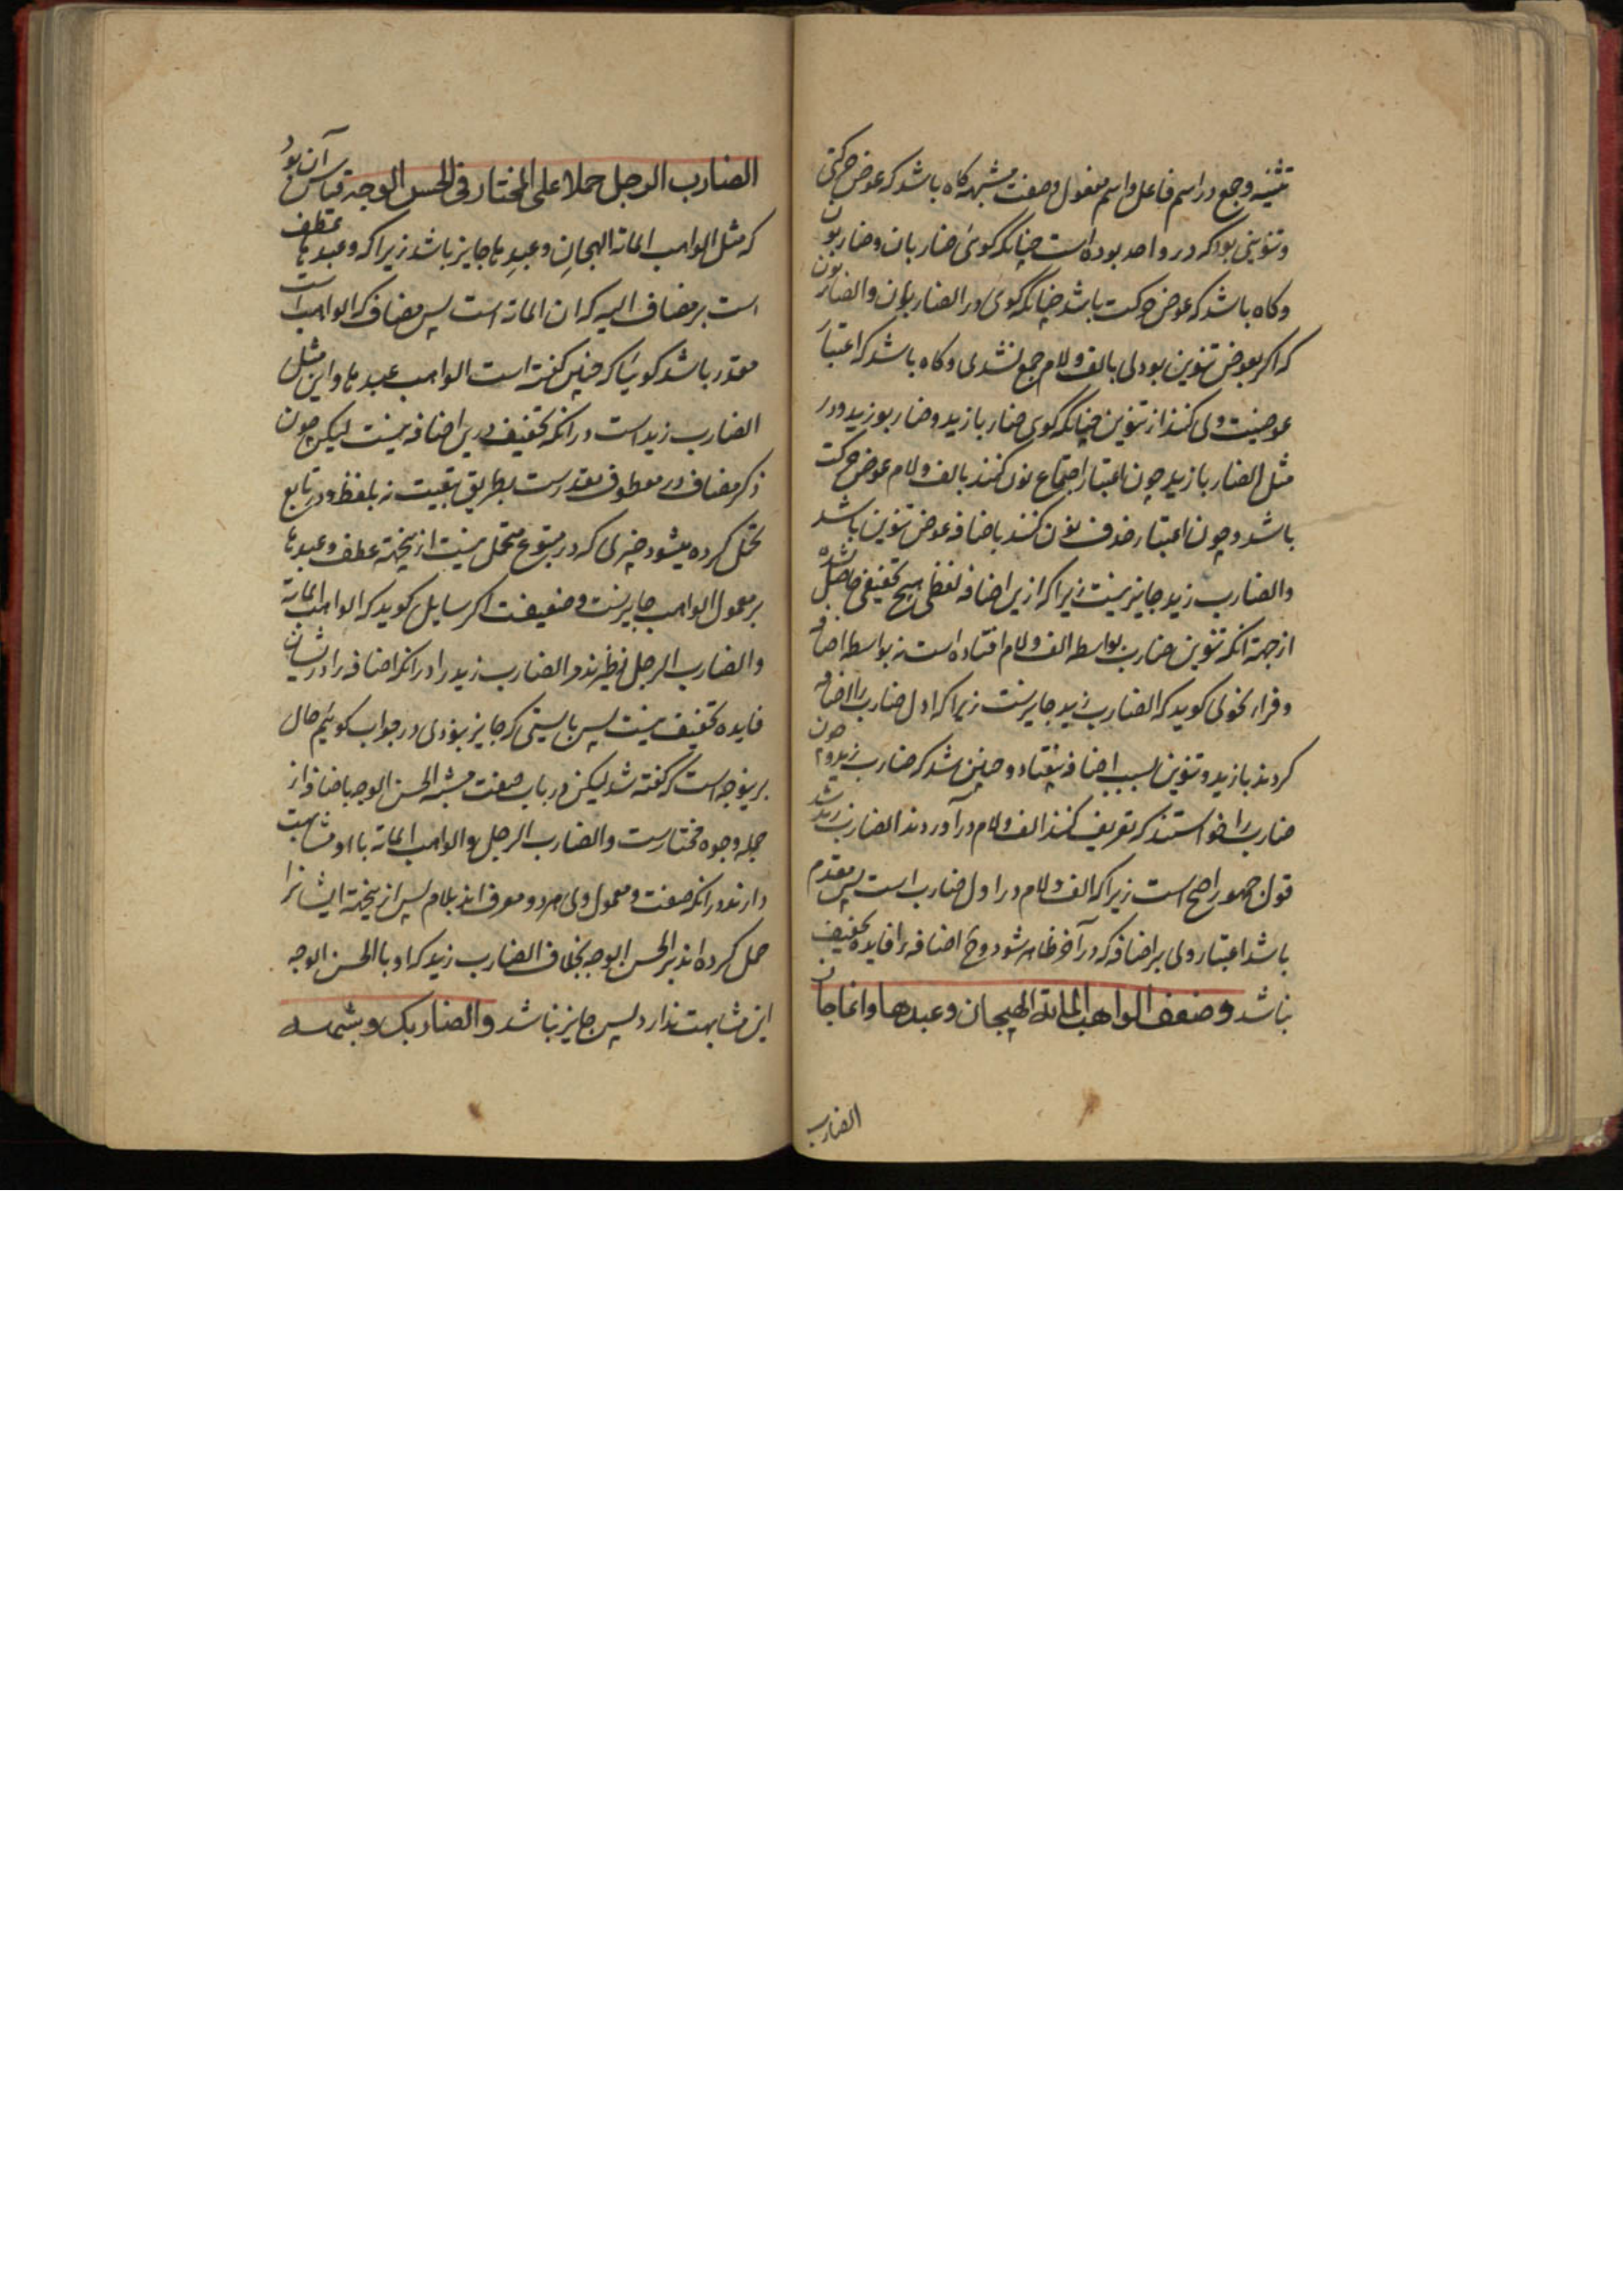 تثنیه و جمع در اسم فاعل و اسم مفعول و صفت مشبهه کاه باشد که عوض حرکتی
و تنوینی بود که در واحد بوده است چنانکه کوئی ضاربان و ضاربون
و کاه باشد که عوض حرکت باشد چنانکه کوی در الضاربان و الضاربون
که اکر بعوض تنوین بودی با الف و لام جمع نشدی و کاه باشد که اعتبار
عوضیت وی کنند از تنوین چنانکه کوی ضاربا زید و ضاربو زید و در
مثل الضاربا زید چون اعتبار اجتماع نون کنند با الف و لام عوض حرکت
باشد و چون اعتبار حذف نون کنند باضافه عوض تنوین باشد
والضارب زید جایز نیست زیرا که ازین اضافه لفظی هیچ تخفیفی حاصل نشده
از جهة انکه تنوین ضارب بواسطه الف و لام افتاده است نه بواسطه اضافه
و فراء نحوی کوید که الضارب زید جایزست زیرا که اول ضارب را اضافه
کردند با زید و تنوین بسبب اضافه بیفتاد و چنین شد که ضارب زید و چون
ضارب را خواستند که تعریف کنند الف و لام در آوردند الضارب زید شد
قول جمهور اصح است زیرا که الف و لام در اول ضارب است پس مقدم
باشد اعتبار وی بر اضافه که در آخر ظاهر شود و ح اضافه را فایده تخفیف
نباشد وضعف الواهب المائة الهجان وعبدها وانما جاز
الضارب
الضارب الرجل حملا على المختار في الحسن الوجه قیاس آن بود
که مثل الواهب المائة الهجان وعبدها جایز باشد زیرا که وعبدها عطف
است بر مضاف الیه که ان المائة است پس مضاف که الواهب است
مقدر باشد کوئیا که چنین کفته است الواهب عبدها و این مثل
الضارب زید است در انکه تخفیف درین اضافه نیست لیکن چون
ذکر مضاف در معطوف مقدرست بطریق تبعیت نه بلفظ و در تابع
تحمل کرده میشود چیزی که در متبوع متحمل نیست ازینجهة عطف وعبدها
بر معمول الواهب جایزست و ضعیفست اکر سایل کوید که الواهب المائة
والضارب الرجل نظیرند والضارب زید را در انکه اضافه را در ایشان
فایده تخفیف نیست پس بایستی که جایز نبودی در جواب کوئیم حال
برینوجه است که کفته شد لیکن در باب صفت مشبه الحسن الوجه باضافه از
جمله وجوه مختارست والضارب الرجل والواهب المائة با او مشابهت
دارند در انکه صفت و معمول وی هر دو معرف اند بلام پس ازینجهة ایشانرا
حمل کرده اند بر الحسن الوجه بخلاف الضارب زید که او با الحسن الوجه
این مشابهت ندارد پس جایز نباشد والضاربک وشبهه